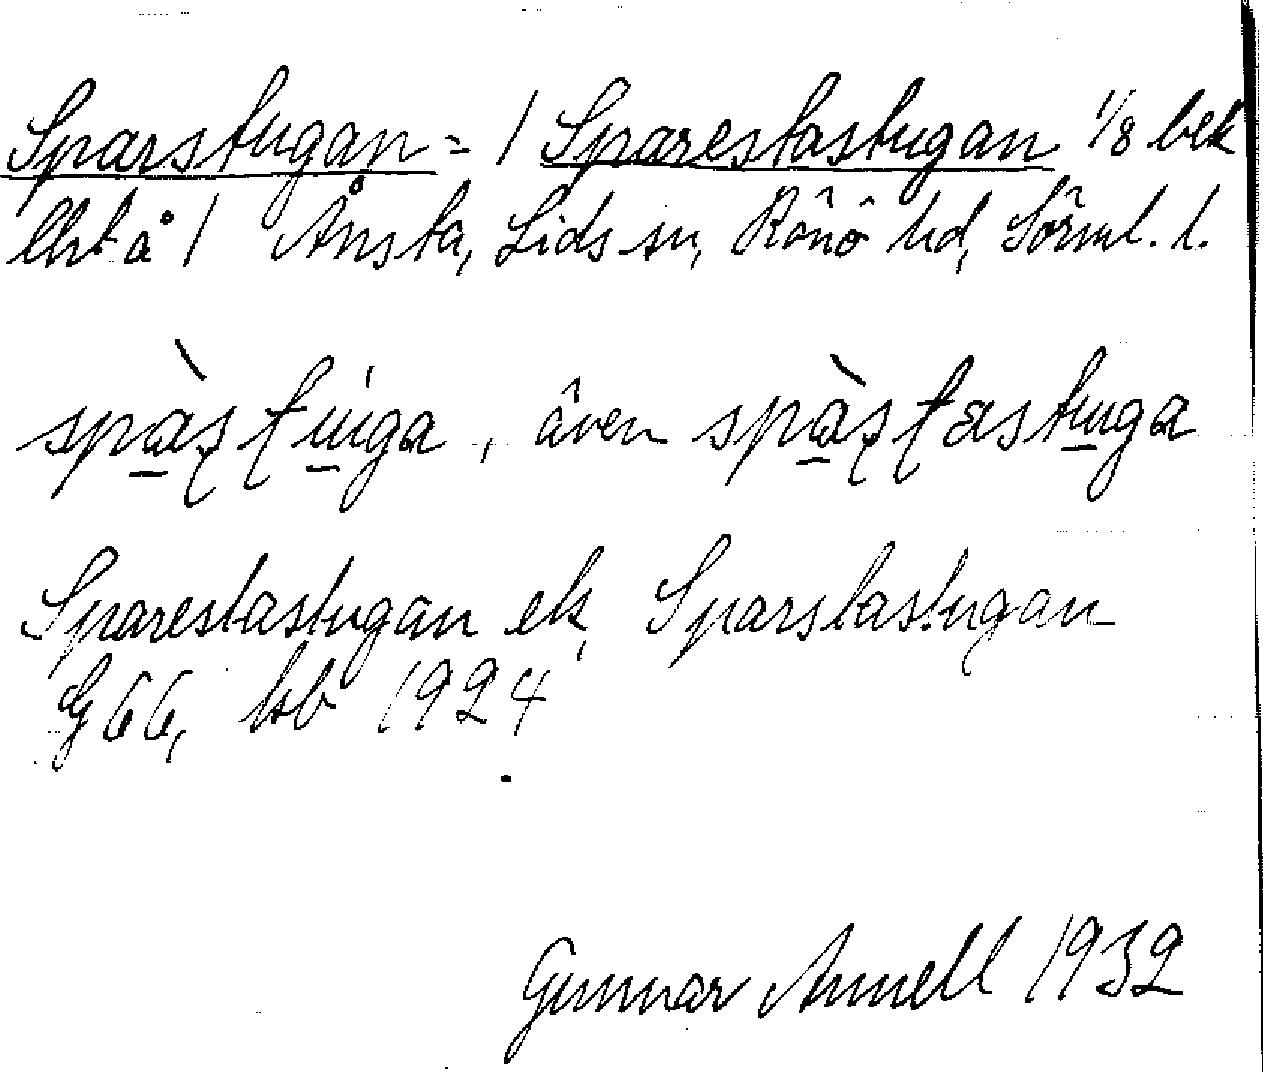 Sparstugan = / Sparestastugan 1/8 bek
lht å / Ånsta, Lids sn, Rönö hd, Sörml. l.
spàṣtuga, även spàṣtastuga
Sparestastugan ek, Sparstastugan
G 66, kb 1924
Gunnar Annell 1932